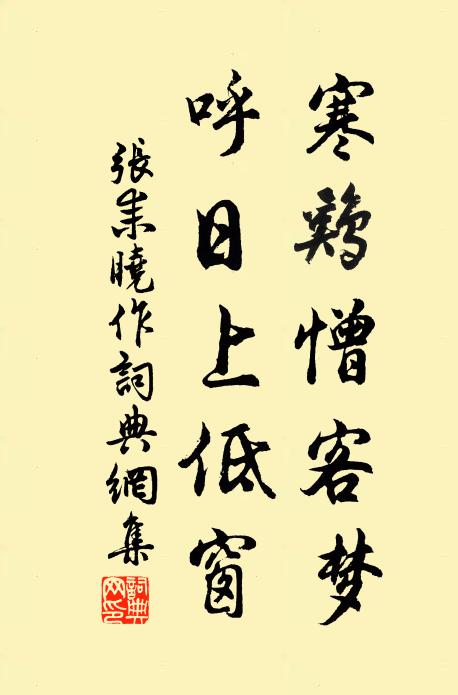 寒鸡憎客梦
呼日上低窗
張耒曉作詞典網集
詞典网印